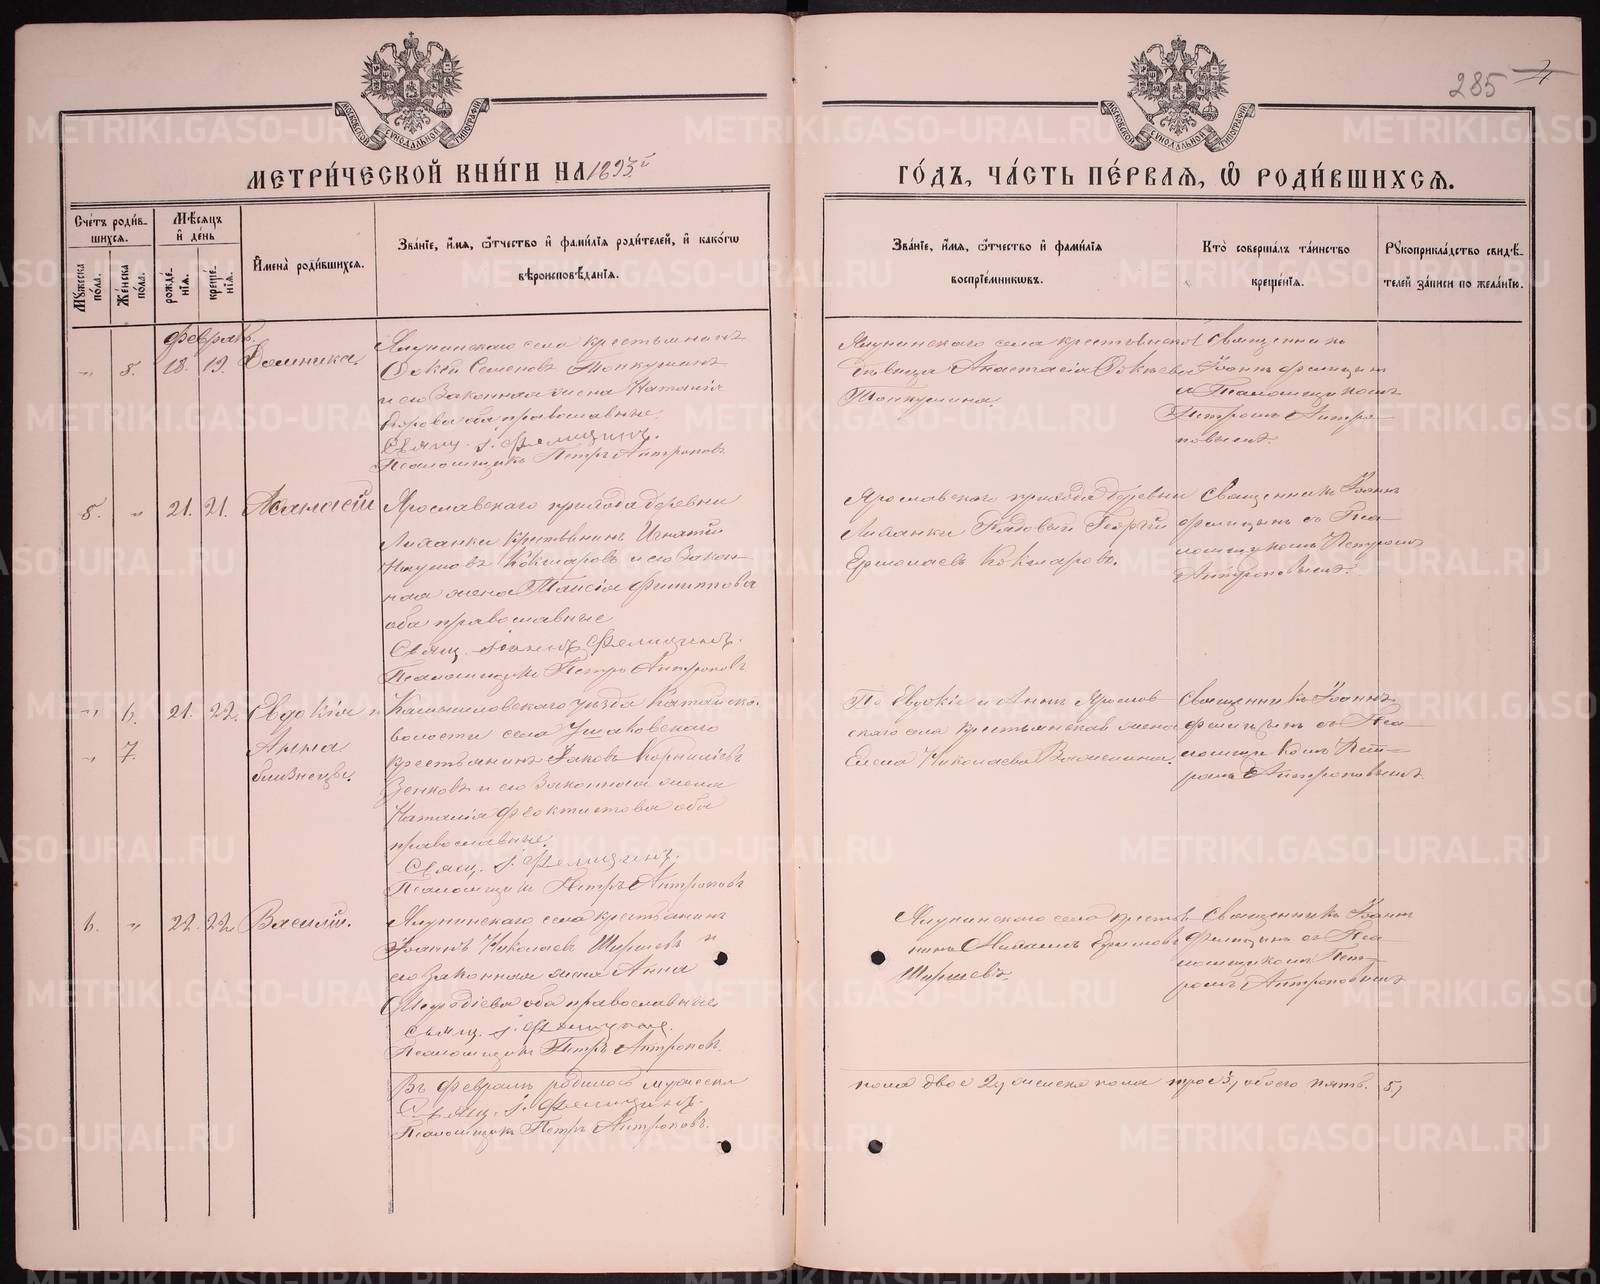 285
МЕТРИ́ЧЕСКОЙ КНИ́ГИ НА 1893й
ГО́ДЪ, ЧА́СТЬ ПЕ́РВАЯ, Ѡ РОДИ́ВШИХСЯ.
Сче́тъ роди́в-
шихся.
Му́жеска по́ла.
Же́нска по́ла.
Мѣ́сяцъ
и҆ де́нь
рожде́-
нїя.
креще́-
нїя.
И҆мена̀ роди́вшихся.
Зва́нїе, и҆́мя, ѻ҆́тчество и҆ фами́лїя роди́телей, и҆ како́гѡ
вѣроисповѣ́данїя.
Зва́нїе, и҆́мя, ѻ҆́тчество и҆ фами́лїя
воспрїе́мникѡвъ.
Кто̀ соверша́лъ та́инство
креще́нїя.
Рꙋкоприкла́дство свидѣ́-
телей за́писи по жела́нїю.
Феврал.
„ 5. 18. 19. Домника.
Ялунинскаго села крестьянинъ
Фокій Семеновъ Топкушинъ
и его законная жена Наталія
оба православные
Свящ. І. Фелицинъ.
Псаломщикъ Петръ Антроповъ
Ялунинскаго села крестьянская
девица Анастасія
Топкушина.
Священникъ
Іоаннъ Фелицинъ
Псаломщикомъ
Петромъ Антро-
повымъ.
5. „ 21. 21. Аѳанасій
Ярославскаго прихода деревни
Игнатій
Наумовъ Кокшаровъ и его закон-
ная жена Таисія Филиппова
оба православные
Свящ. Іоаннъ Фелицинъ.
Псаломщикъ Петръ Антроповъ
Ярославскаго прихода деревни
Рядовый Георгій
Ермолаевъ Кокшаровъ.
Священникъ Іоаннъ
Фелицинъ съ Пса-
ломщикомъ Петромъ
Антроповымъ.
„ 6. 21. 22. Евдокія и
„ 7. Анна
близнецы.
Камышловскаго уезда Катайско.
волости села Ушаковскаго
крестьянинъ Іаковъ Корниліевъ
Зенковъ и его законная жена
Наталія Феоктистова оба
православные.
Свящ. І. Фелицинъ.
Псаломщикъ Петръ Антроповъ
По Евдокіи и Анны
скаго села крестьянская жена
Елена Николаева
Священникъ Іоаннъ
Фелицинъ съ Пса-
ломщикомъ Пет-
ромъ Антроповымъ
6. „ 22. 22. Василій.
Ялунинскаго села крестьянинъ
Іоаннъ Николаевъ Ширшевъ и
его законная жена Анна
Меѳодіева оба православные
Свящ. І. Фелицинъ.
Псаломщикъ Петръ Антроповъ
Ялунинскаго села крестья-
нинъ Михаилъ Ефимовъ
Ширшевъ
Священникъ Іоаннъ
Фелицинъ съ Пса-
ломщикомъ Пет-
ромъ Антроповымъ
Въ Феврале родилось мужеска
пола двое 2, женска пола трое 3, обоего пять. 5,
Свящ. І. Фелицинъ.
Псаломщикъ Петръ Антроповъ.
METRIKI.GASO-URAL.RU